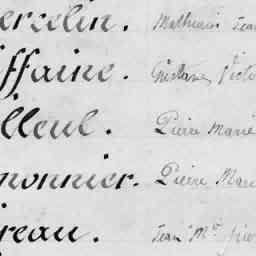 ercelin. Mathurin Jean
iffaine. Gustave Victo
illeul. Pierre Marie
monnier. Pierre Marie
reau. Jean Mie